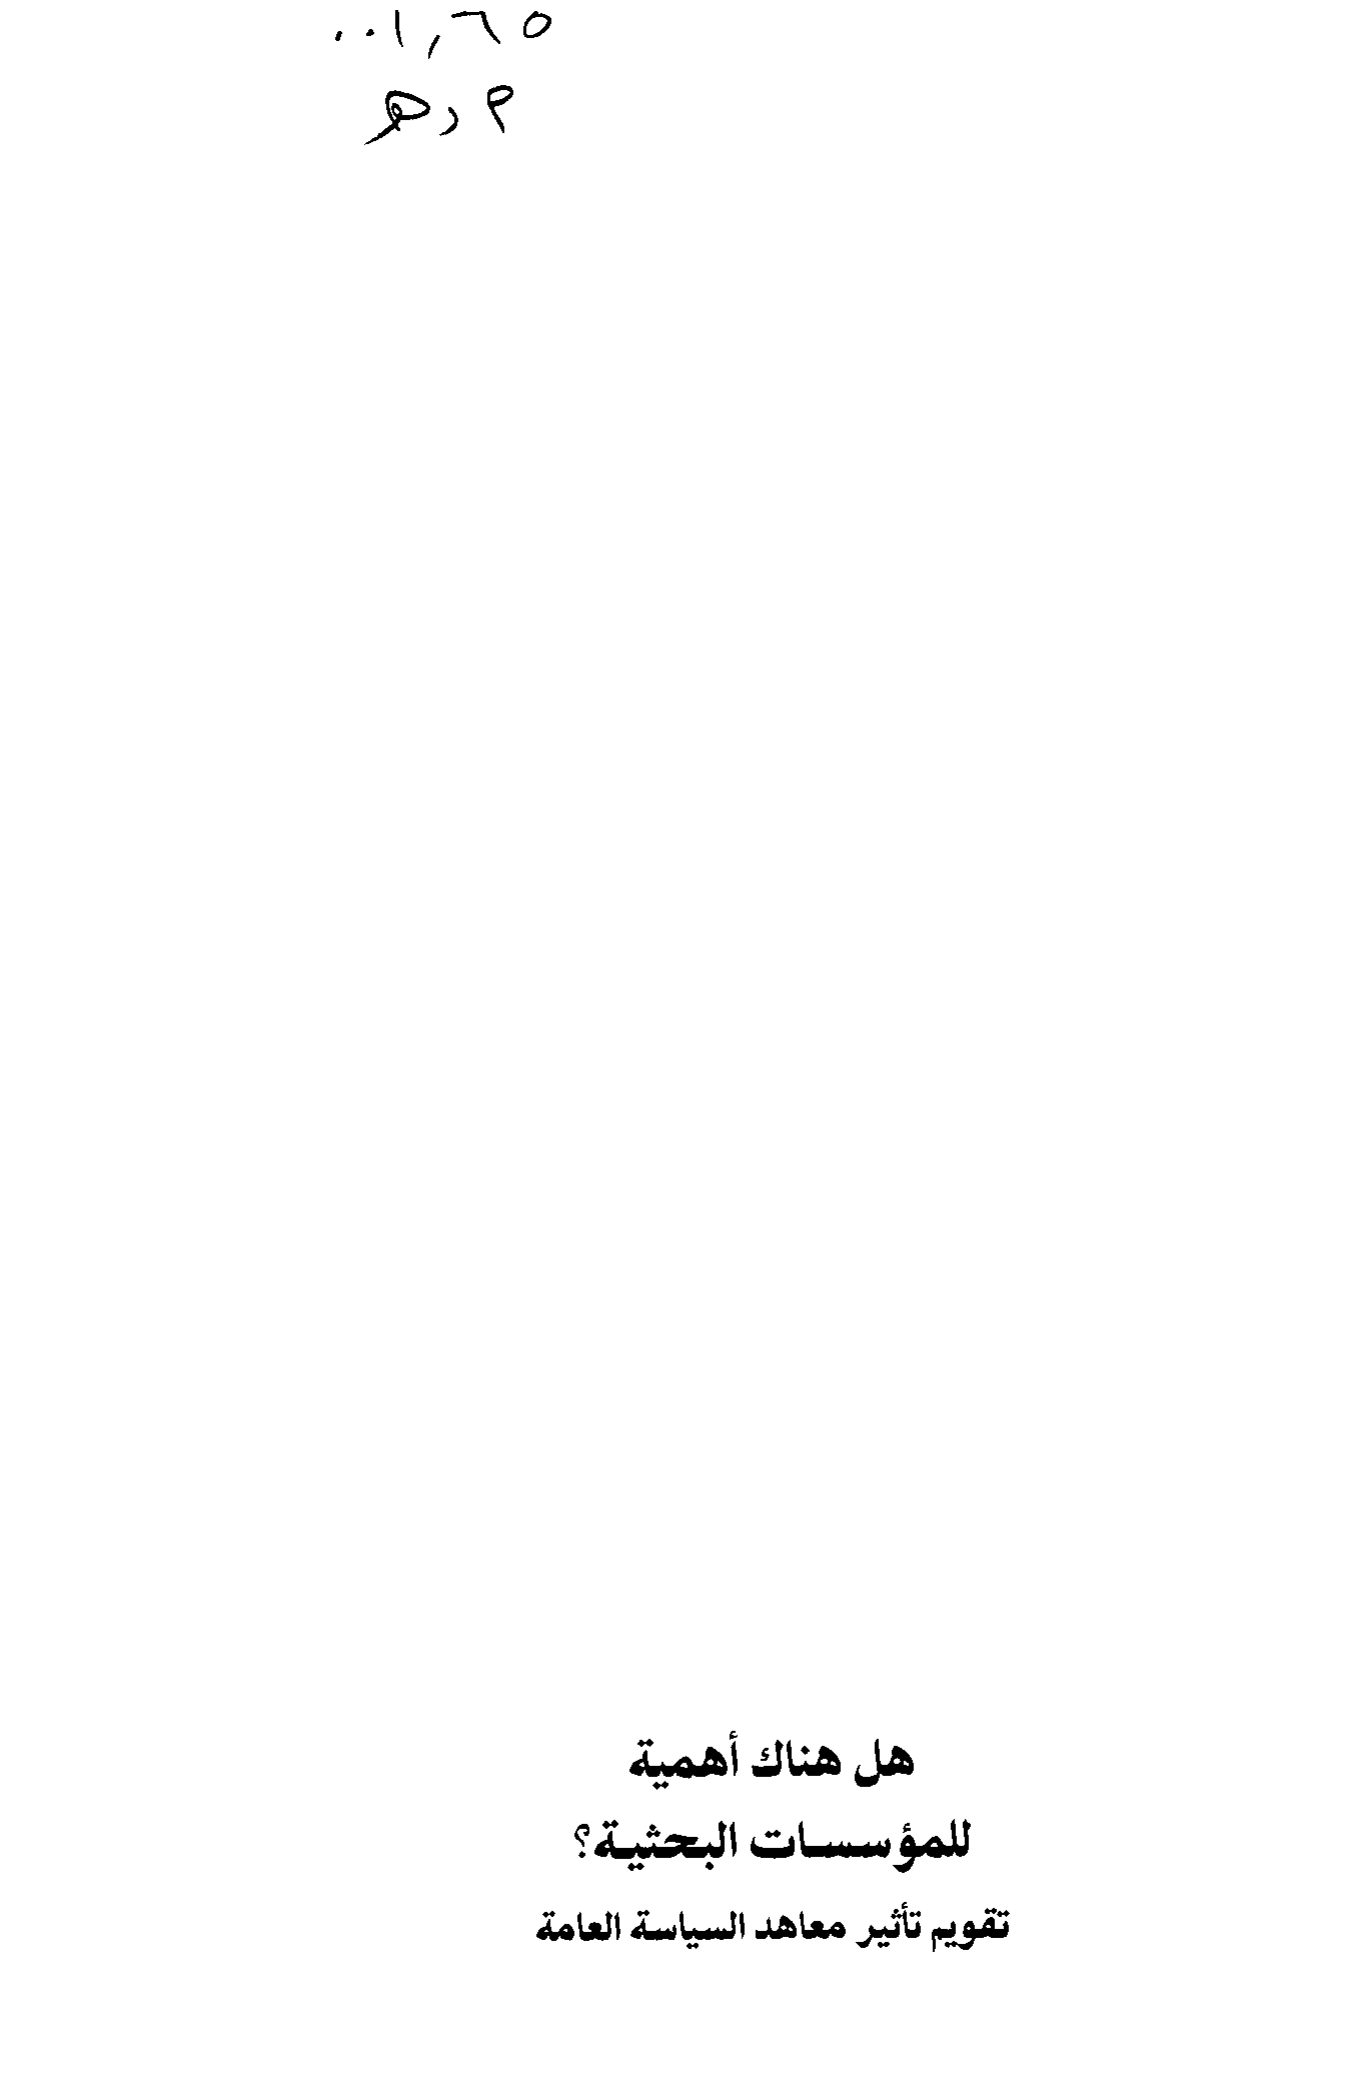 ٠٠١,٦٥
م د هـ
هل هناك أهمية
للمؤسسات البحثية؟
تقويم تأثير معاهد السياسة العامة